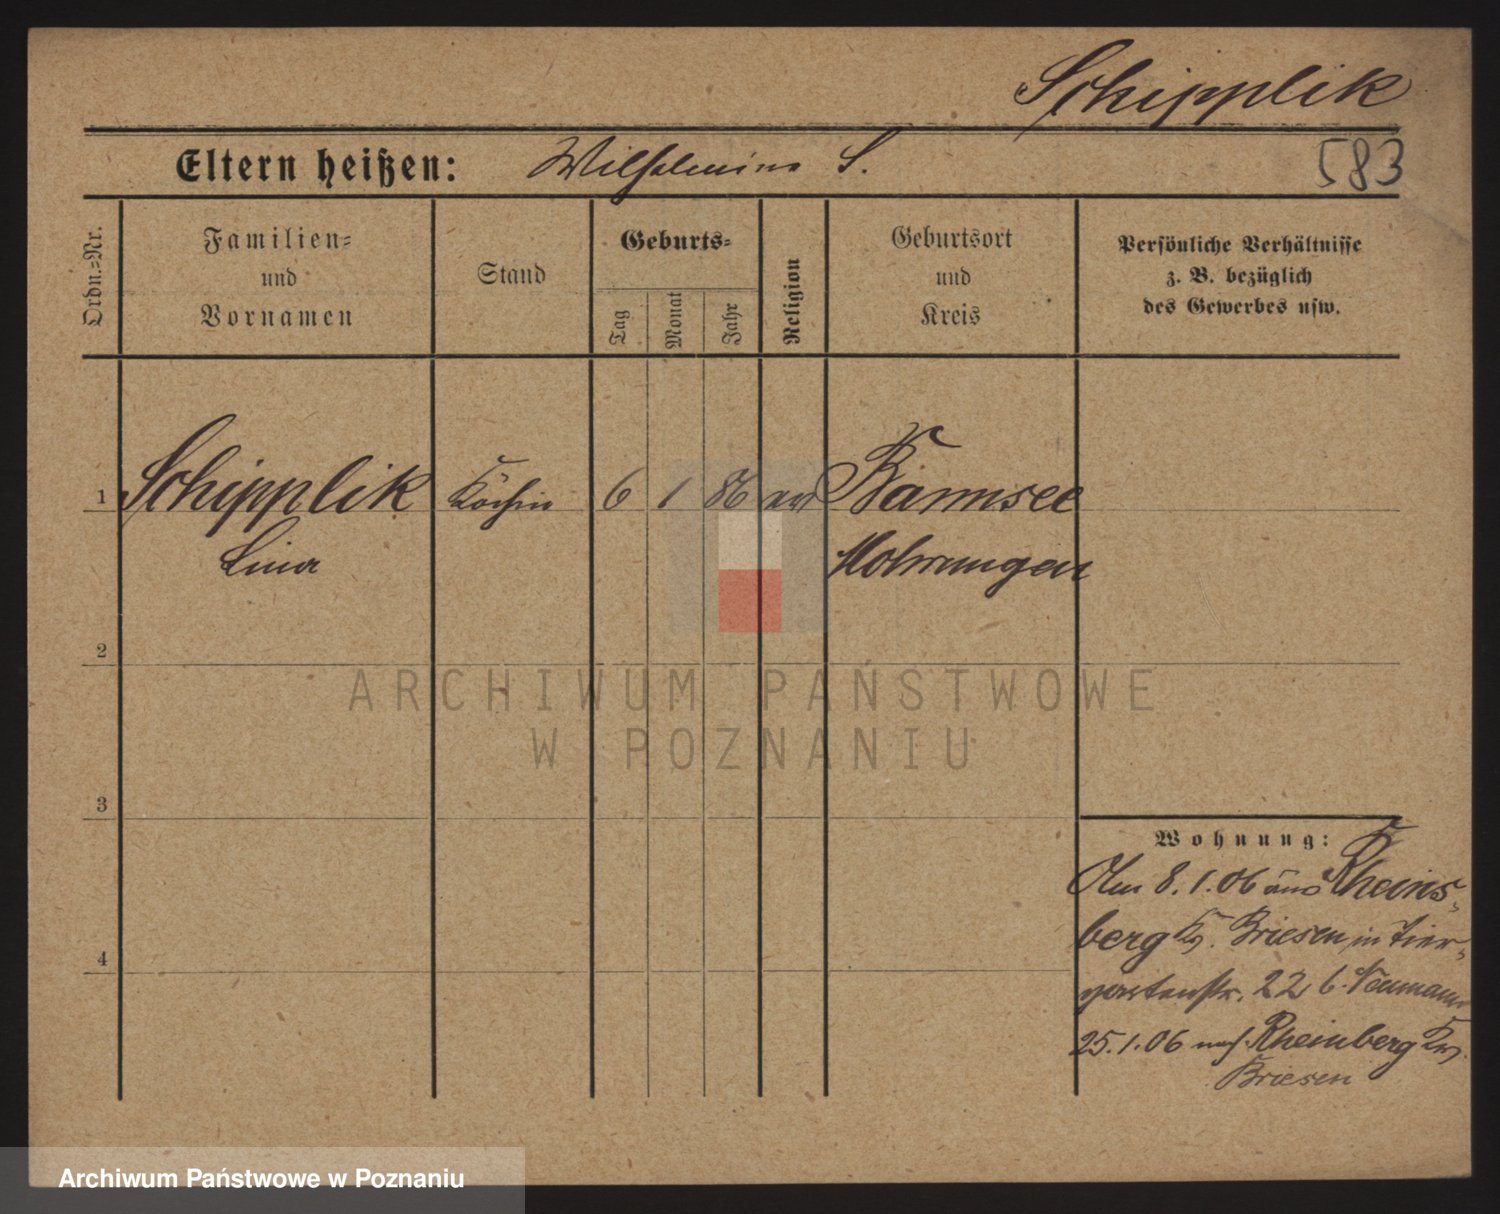 Schipplik
Eltern heißen: Wilhelmine S.
583
Ordn.=Nr.
Familien=
und
Vornamen
Stand
Geburts=
Tag
Monat
Jahr
Religion
Geburtsort
und
Kreis
Persönliche Verhältnisse
z. B. bezüglich
des Gewerbes usw.
1 Schipplik Köchin 6 1 86 Bärnsee
Lina Mohrungen
2
ARCHIWUM PAŃSTWOWE
W POZNANIU
3
Wohnung:
Am 8.1.06 aus Rheins-
berg Kr. Briesen in Tier-
gartenstr. 22 b. Neumann
4
25.1.06 nach Rheinberg Kr.
Briesen
Archiwum Państwowe w Poznaniu